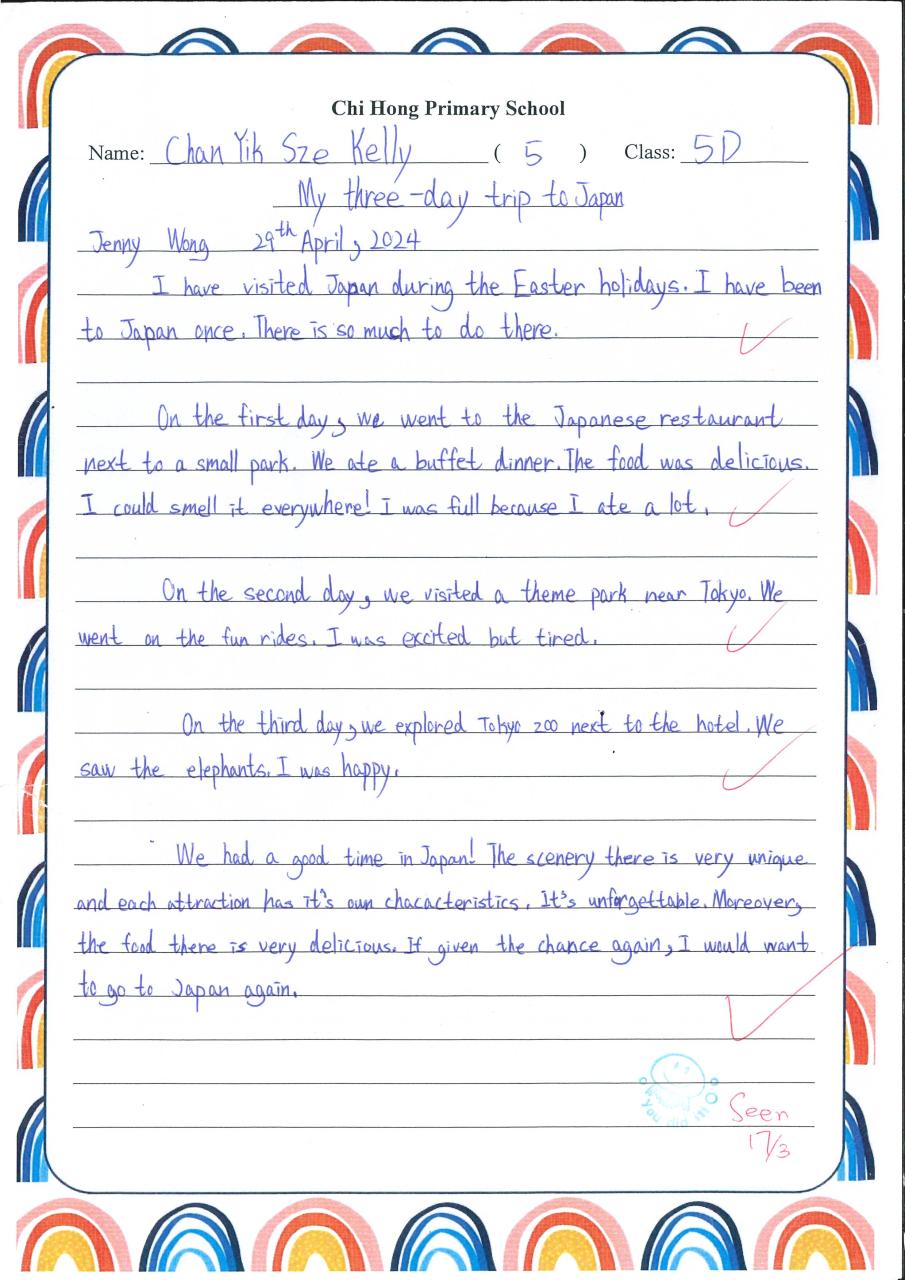 Chi Hong Primary School
Name: Chan Yik Sze Kelly ( 5 ) Class: 5D
My three-day trip to Japan
Jenny Wong 29th April, 2024
I have visited Japan during the Easter holidays. I have been
to Japan once. There is so much to do there.
On the first day, we went to the Japanese restaurant
next to a small park. We ate a buffet dinner. The food was delicious.
I could smell it everywhere! I was full because I ate a lot.
On the second day, we visited a theme park near Tokyo. We
went on the fun rides. I was excited but tired.
On the third day, we explored Tokyo zoo next to the hotel. We
saw the elephants. I was happy.
We had a good time in Japan! The scenery there is very unique
and each attraction has it's own chacacteristics. It's unforgettable. Moreover,
the food there is very delicious. If given the chance again, I would want
to go to Japan again.
You did it!
Seen
17/3